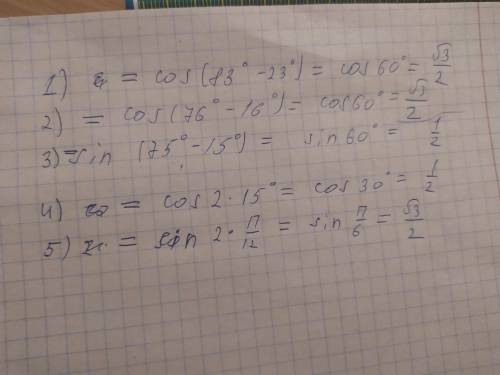 1) = cos(83° - 23°) = cos 60° = √3/2
2) = cos(76° - 16°) = cos 60° = √3/2
3) = sin (75° - 15°) = sin 60° = 1/2
4) = cos 2 · 15° = cos 30° = 1/2
5) = sin 2 · π/12 = sin π/6 = √3/2